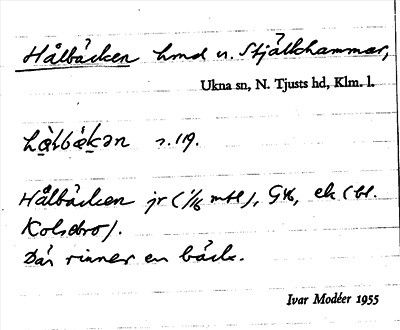 Hålbäcken hmd u. Stjälkhammar,
Ukna sn, N. Tjusts hd, Klm. l.
s. 119.
Hålbäcken jr (1/16 mtl), G46, ek (bl.
Kolsebro).
Där rinner en bäck.
Ivar Modéer 1955